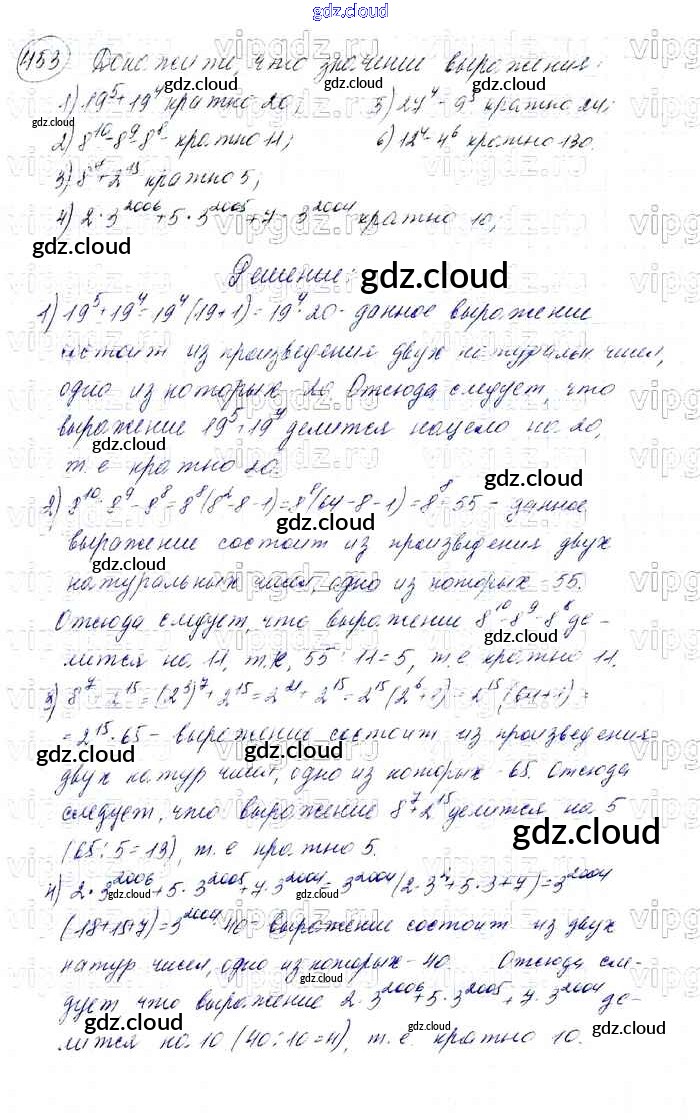 gdz.cloud
453 Докажите, что значение выражения:
1) 19⁵+19⁴ кратно 20; 5) 27⁴-9⁵ кратно 24;
2) 8¹⁰-8⁹-8⁸- кратно 11; 6) 12⁴-4⁶ кратно 130.
3) 8⁷+2¹⁵ кратно 5;
4) 2·3²⁰⁰⁶+5·3²⁰⁰⁵+7·3²⁰⁰⁴ кратно 10;
Решение:
1) 19⁵+19⁴=19⁴(19+1)=19⁴·20- данное выражение
состоит из произведения двух натуральн чисел,
одно из которых 20 Отсюда следует, что
выражение 19⁵+19⁴ делится нацело на 20,
т.е кратно 20.
2) 8¹⁰-8⁹-8⁸=8⁸(8²-8-1)=8⁸(64-8-1)=8⁸·55 - данное
выражение состоит из произведения двух
натуральных чисел, одно из которых 55.
Отсюда следует, что выражение 8¹⁰-8⁹-8⁸ де-
лится на 11, т.к, 55:11=5, т.е кратно 11.
3) 8⁷+2¹⁵=(2³)⁷+2¹⁵=2²¹+2¹⁵=2¹⁵(2⁶+1)=2¹⁵(64+1)=
=2¹⁵·65- выражение состоит из произведения
двух натур чисел, одно из которых -65. Отсюда
следует, что выражение 8⁷+2¹⁵ делится на 5
(65:5=13), т.е кратно 5.
4) 2·3²⁰⁰⁶+5·3²⁰⁰⁵+7·3²⁰⁰⁴=3²⁰⁰⁴(2·3²+5·3+7)=3²⁰⁰⁴
(18+15+7)=3²⁰⁰⁴·40- выражение состоит из двух
натур чисел, одно из которых -40 Отсюда сле-
дует что выражение 2·3²⁰⁰⁶+5·3²⁰⁰⁵+7·3²⁰⁰⁴ де-
лится на 10 (40:10=4), т.е кратно 10.
gdz.cloud